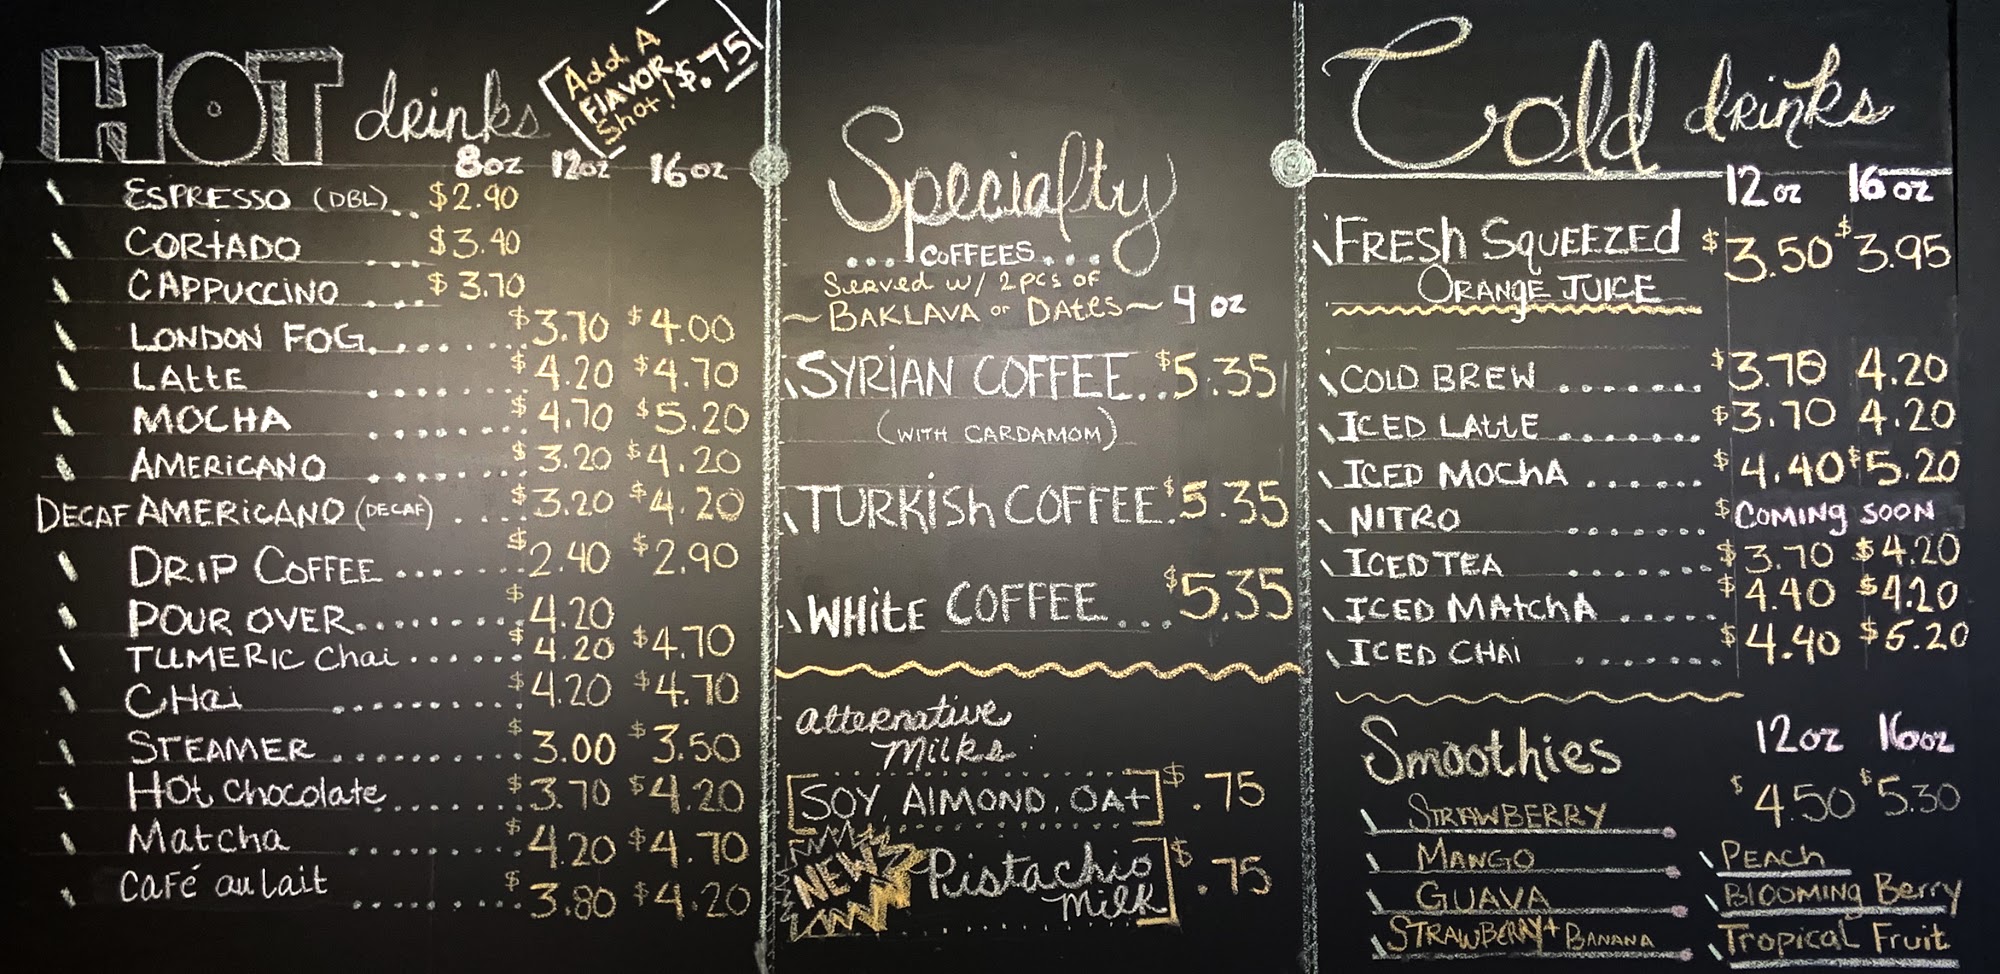 HOT drinks
Add A
FlAVOR
Shot! $.75
8oz 12oz 16oz
ESPRESSO (DBL).. $2.90
CORtADO .... $3.40
CAPPUCCINO .... $3.70
LONDON FOG........ $3.70 $4.00
LAttE ........ $4.20 $4.70
MOCHA ........ $4.70 $5.20
AMERiCANO ........ $3.20 $4.20
DECAF AMERiCANO (DECAF) .... $3.20 $4.20
DRIP COFFEE ....... $2.40 $2.90
POUR OVER......... $4.20
TUMERIC Chai ...... $4.20 $4.70
CHai ......... $4.20 $4.70
STEAMER ......... $3.00 $3.50
HOt Chocolate....... $3.70 $4.20
Matcha ........ $4.20 $4.70
CaFé au lait ......... $3.80 $4.20
Specialty
...COFFEES...
Served w/ 2 pcs of
~BAKLAVA or DAtes~ 4 oz
SYRiAN COFFEE.. $5.35
(WITH CARDAMOM)
TURKiSh COFFEE. $5.35
WHitE COFFEE... $5.35
alternative
Milks:
[SOY, AlMOND, OAt] $.75
NEW Pistachio
Milk] $.75
Cold drinks
12oz 16oz
FRESh SQUEEZEd $3.50 $3.95
ORANGE JUICE
COLD BREW ....... $3.70 4.20
ICED LAttE ....... $3.70 4.20
ICED MOChA ...... $4.40 $5.20
NITRO ....... $COMING SOON
ICED TEA ........ $3.70 $4.20
ICED MAtchA ..... $4.40 $4.20
ICED CHAi ....... $4.40 $5.20
Smoothies 12oz 16oz
$4.50 $5.30
STRAWBERRY
MANGO
GUAVA
STRAWBERRY+ BANANA
PEACh
BlOOMING Berry
Tropical Fruit